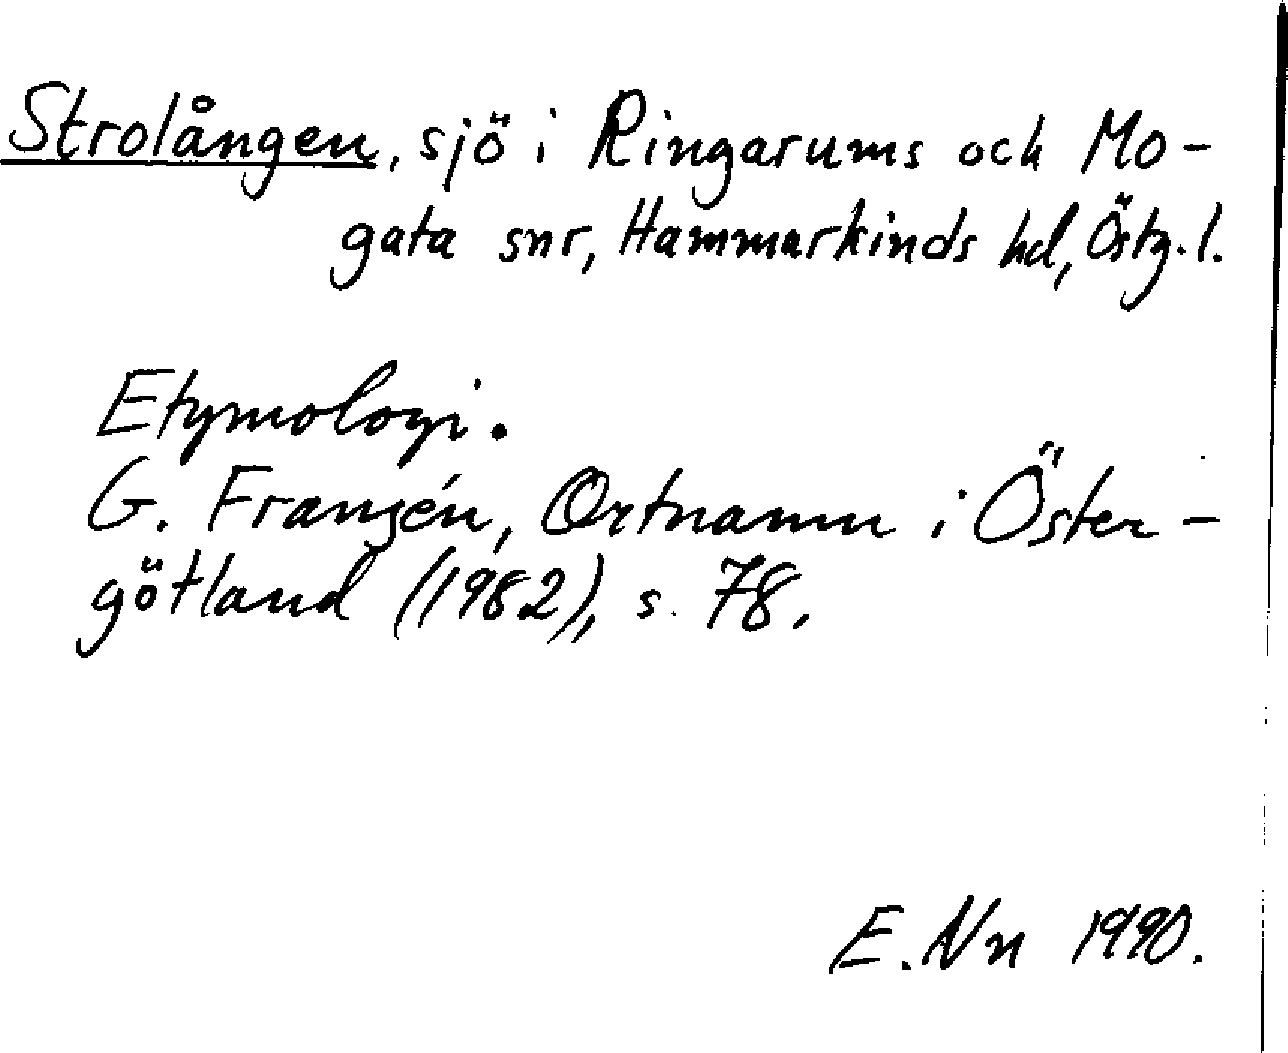 Strolången, sjö i Ringarums och Mo-
gata snr, Hammarkinds hd, Östg. l.
Etymologi.
G. Franzén, Ortnamn i Öster-
götland (1982), s. 78.
E. Nn 1990.